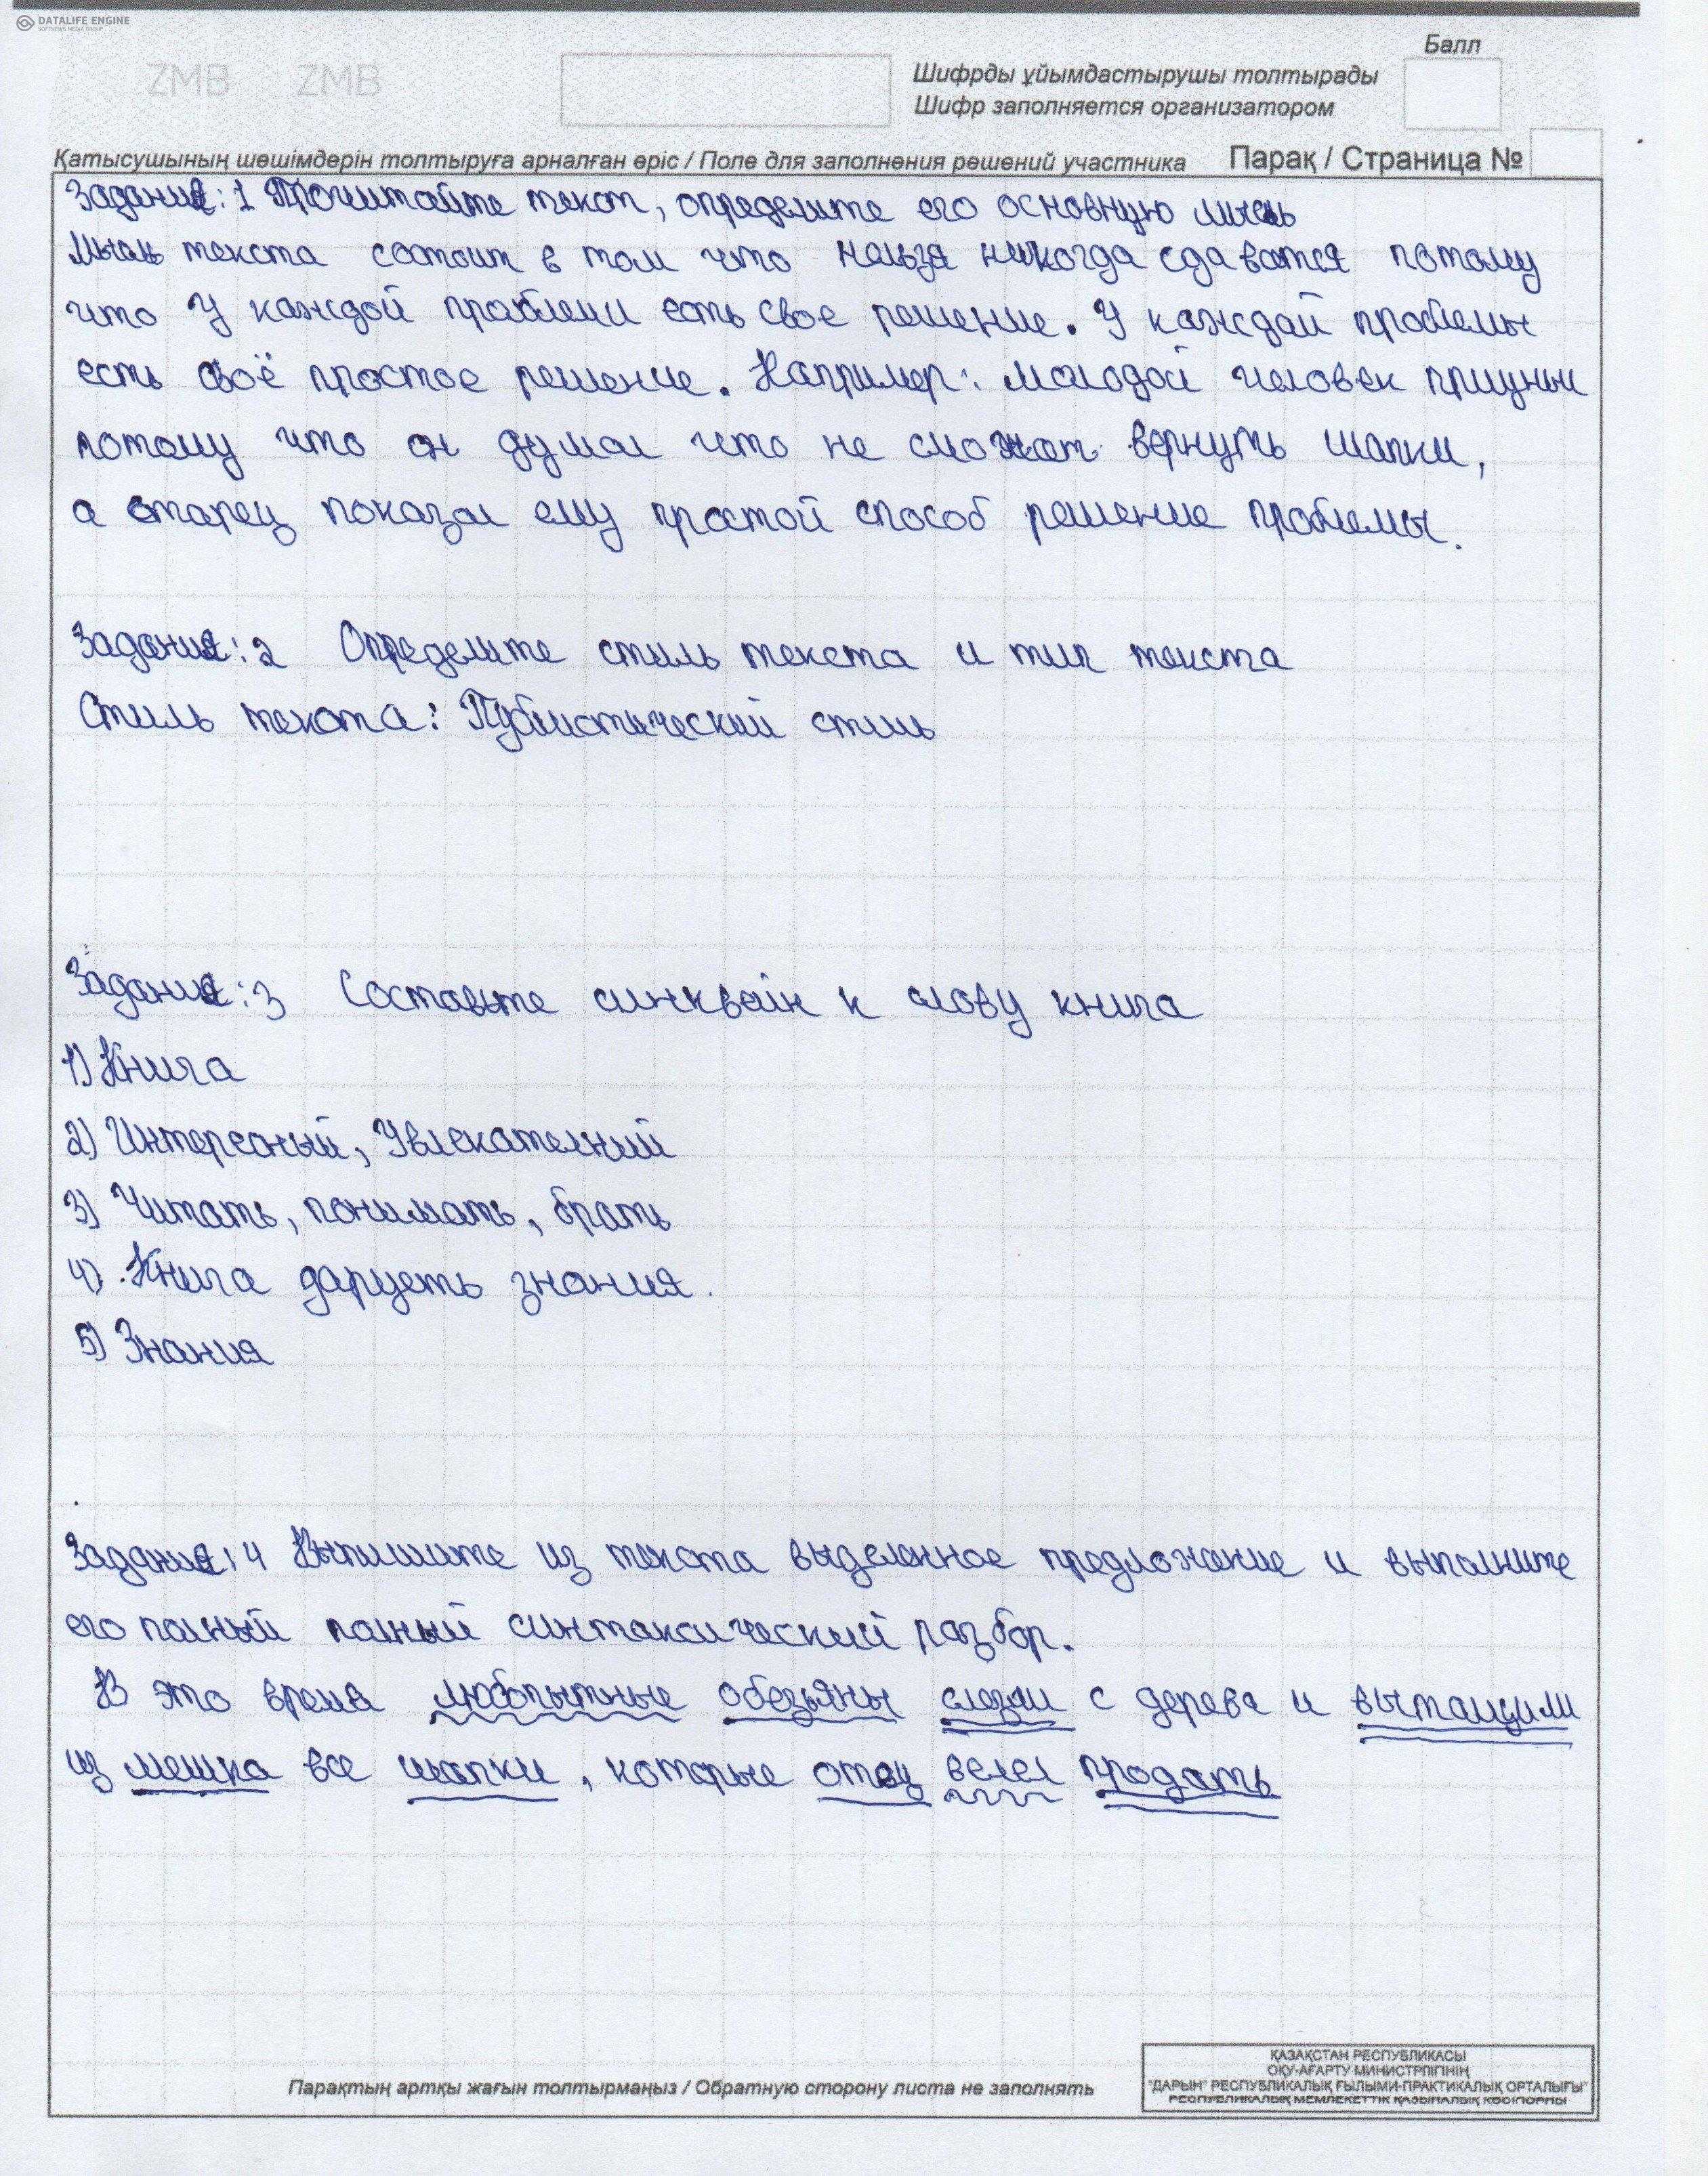 DATALIFE ENGINE
SOFTNEWS MEDIA GROUP
ZMB ZMB
Балл
Шифрды ұйымдастырушы толтырады
Шифр заполняется организатором
Қатысушының шешімдерін толтыруға арналған өріс / Поле для заполнения решений участника Парақ / Страница №
Задание: 1 Прочитайте текст, определите его основную мысль
Мысль текста состоит в том что нельзя никогда сдаватся потому
что У каждой проблеми есть свое решение. У каждай проблемы
есть своё простое решение. Например: молодой человек приуныл
потому что он думал что не сможет вернуть шапки,
а старец показал ему простой способ решение проблемы.
Задание: 2 Определите стиль текста и тип текста
Стиль текста: Публистический стиль
Задание: 3 Составьте синквейн к слову книга
1) Книга
2) Интересный, Увлекателний
3) Читать, понимать, брать
4) Книга даруеть знания.
5) Знания
Задание: 4 Выпишите из текста выделенное предложение и выполните
его полный полный синтаксический разбор.
В это время любопытные обезьяны слезли с дерева и вытащили
из мешка все шапки, которые отец велел продать
Парақтың артқы жағын толтырмаңыз / Обратную сторону листа не заполнять
ҚАЗАҚСТАН РЕСПУБЛИКАСЫ
ОҚУ-АҒАРТУ МИНИСТРЛІГІНІҢ
"ДАРЫН" РЕСПУБЛИКАЛЫҚ ҒЫЛЫМИ-ПРАКТИКАЛЫҚ ОРТАЛЫҒЫ"
РЕСПУБЛИКАЛЫҚ МЕМЛЕКЕТТІК ҚАЗЫНАЛЫҚ КӘСІПОРНЫ